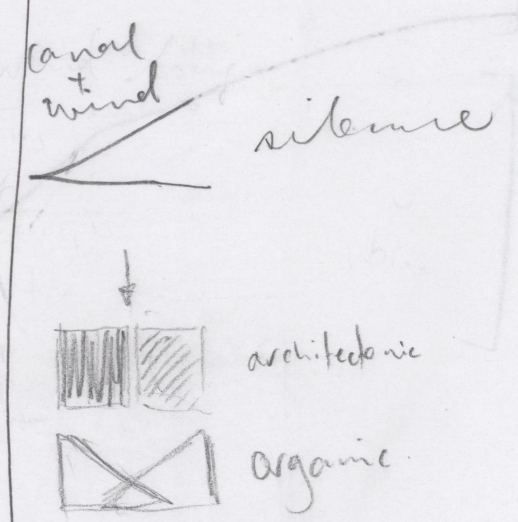 canal
+
wind
silence
architectonic
organic.